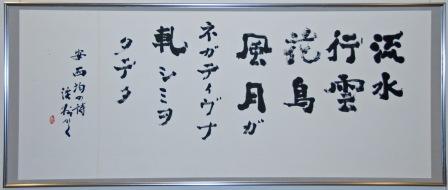 流水
行雲
花鳥
風月ガ
ネガティヴナ
軋シミヲ
タテタ
安西均の詩
かく